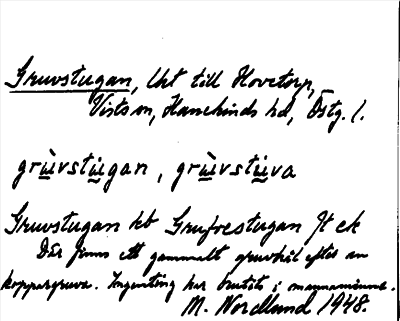 Gruvstugan, Uht till Hovetorp,
Vists sn, Hanekinds hd, Östg. l.
grùvstu̇gan, grùvstu̇va
Gruvstugan kb Grufvestugan Jt ek
Där finns ett gammalt gruvhål efter en
koppargruva. Ingenting har brutits i mannaminne.
M. Nordlund 1948.